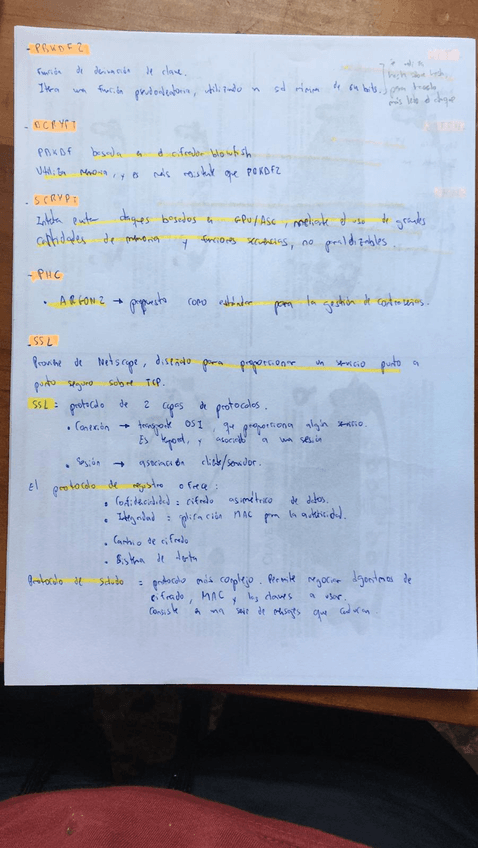 - PBKDF2
Función de derivación de clave.
Itera una función pseudoaleatoria, utilizando un sal mínima de 64 bits.
para hacerlo
más lento el ataque
- BCRYPT
PBKDF basada en el cifrador blowfish
Utiliza memoria, y es más resistente que PBKDF2
- SCRYPT
Intenta evitar ataques basados en GPU/ASIC, mediante el uso de grandes
cantidades de memoria y funciones secuencias, no paralelizables.
- PHC
• ARGON2 → propuesto como estándar para la gestión de contraseñas.
- SSL
Proviene de Netscape, diseñado para proporcionar un servicio punto a
punto seguro sobre TCP.
SSL = protocolo de 2 capas de protocolos.
• Conexión → transporte OSI, que proporciona algún servicio.
Es temporal, y asociado a una sesión
• Sesión → asociación cliente/servidor.
El protocolo de registro ofrece:
• Confidencialidad = cifrado asimétrico de datos.
• Integridad = aplicación MAC para la autenticidad.
• Cambio de cifrado
• Sistema de alerta
Protocolo de saludo = protocolo más complejo. Permite negociar algoritmos de
cifrado, MAC y las claves a usar.
Consiste en una serie de mensajes que